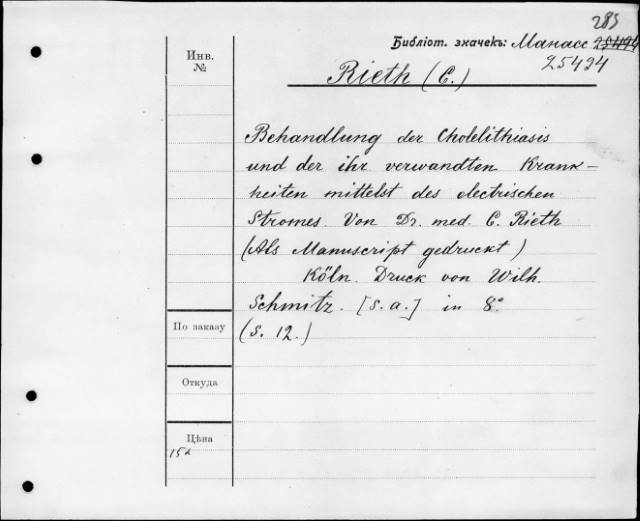 285
Библіот. значекъ: Манасс 25494
25424
Rieth (C.)
Инв.
№
Behandlung der Cholelithiasis
und der ihr verwandten Krank-
heiten mittelst des electrischen
Stromes. Von Dr. med. C. Rieth
(Als Manuscript gedruckt)
Köln. Druck von Wilh.
Schmitz. [s. a.] in 8°
(S. 12.)
По заказу
Откуда
Цѣна